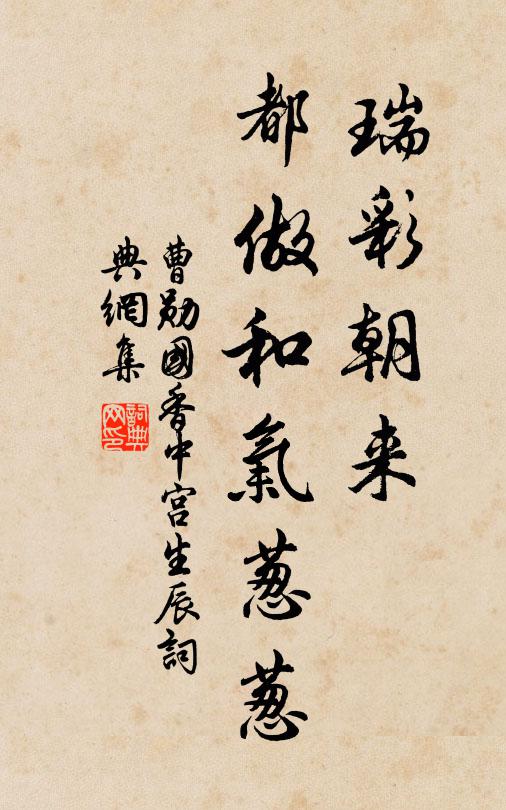 瑞彩朝来
都做和氣葱葱
曹勛國香中宫生辰詞
典網集
詞典
网印